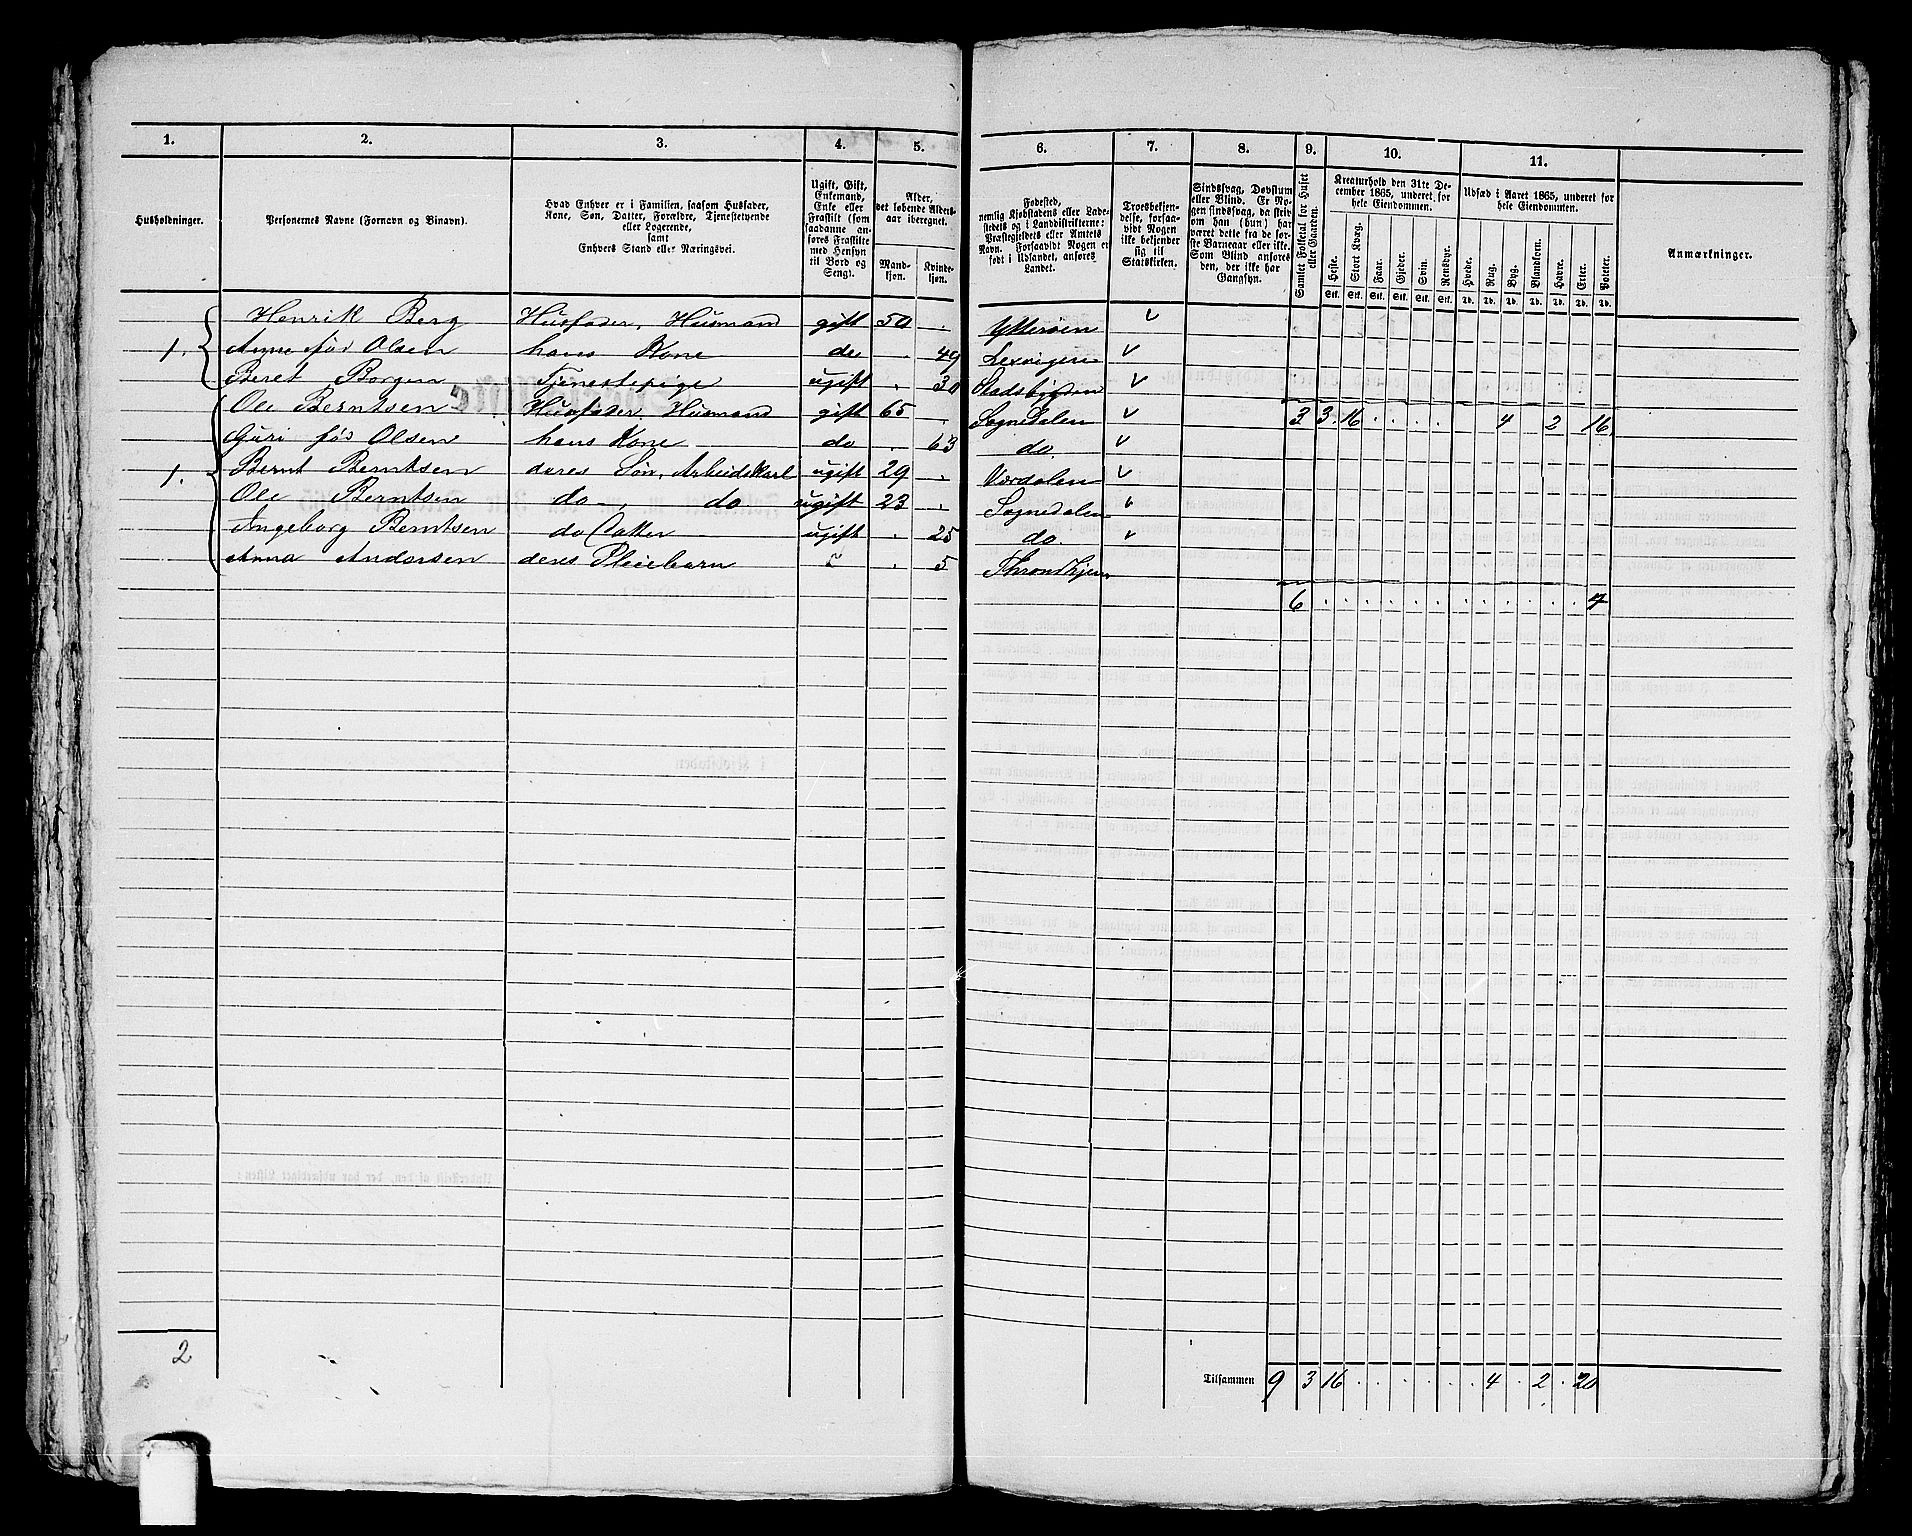 1. 2. 3. 4. 5. 6. 7. 8. 9. 10. 11.
Husholdninger.
Personernes Navne (Fornavn og Binavn).
Hvad Enhver er i Familien, saasom Husfader,
Kone, Søn, Datter, Forældre, Tjenestetyende
eller Logerende,
samt
Enhvers Stand eller Næringsvei.
Ugift, Gift,
Enkemand,
Enke eller
Fraskilt (som
saadanne an-
føres Fraskilte
med Hensyn
til Bord og
Seng).
Alder,
det løbende Alders-
aar iberegnet.
Mand-
kjøn.
Kvinde-
kjøn.
Fødested,
nemlig Kjøbstadens eller Lade-
stedets og i Landdistrikterne:
Præstegjeldets eller Amtets
Navn. Forsaavidt Nogen er
født i Udlandet, anføres
Landet.
Troesbekjen-
delse, forsaa-
vidt Nogen
ikke bekjender
sig til
Statskirken.
Sindssvag, Døvstum
eller Blind. Er No-
gen sindssvag, da skriv
om han (hun) har
været dette fra de før-
ste Barneaar eller ikke.
Som Blind anføres
den, der ikke har
Gangsyn.
Samlet Folketal for Huset
eller Gaarden.
Kreaturhold den 31te De-
cember 1865, underet for
hele Eiendommen.
Heste. Stort Kvæg. Faar. Gjeder. Svin. Rensdyr.
Stk. Stk. Stk. Stk. Stk. Stk.
Udsæd i Aaret 1865, underet for
hele Eiendommen.
Hvede. Rug. Byg. Blandkorn. Havre. Erter. Poteter.
Td. Td. Td. Td. Td. Td. Td.
Anmærkninger.
Henrik Berg Husfader, Husmand gift 50 . Ytterøen v
1. Anne fød Olsen hans Kone do . 49 Lexvigen v
Beret Borgen Tjenestepige ugift . 30 Stadsbygden v
Ole Berntsen Husfader, Husmand gift 65 . Sognedalen v 3 3 16 . . . . 4 2 16
Guri fød Olsen hans Kone do . 63 do. v
1. Bernt Berntsen deres Søn, Arbeidskarl ugift 29 . Værdalen v
Ole Berntsen do, do ugift 23 . Sognedalen v
Angeborg Berntsen do Datter ugift . 25 do. v
Anna Andersen deres Pleiebarn . 5 Throndhjem
6 . . . . . . . . . . . . 4
2
Tilsammen 9 3 16 . . . . . 4 . 2 . 20